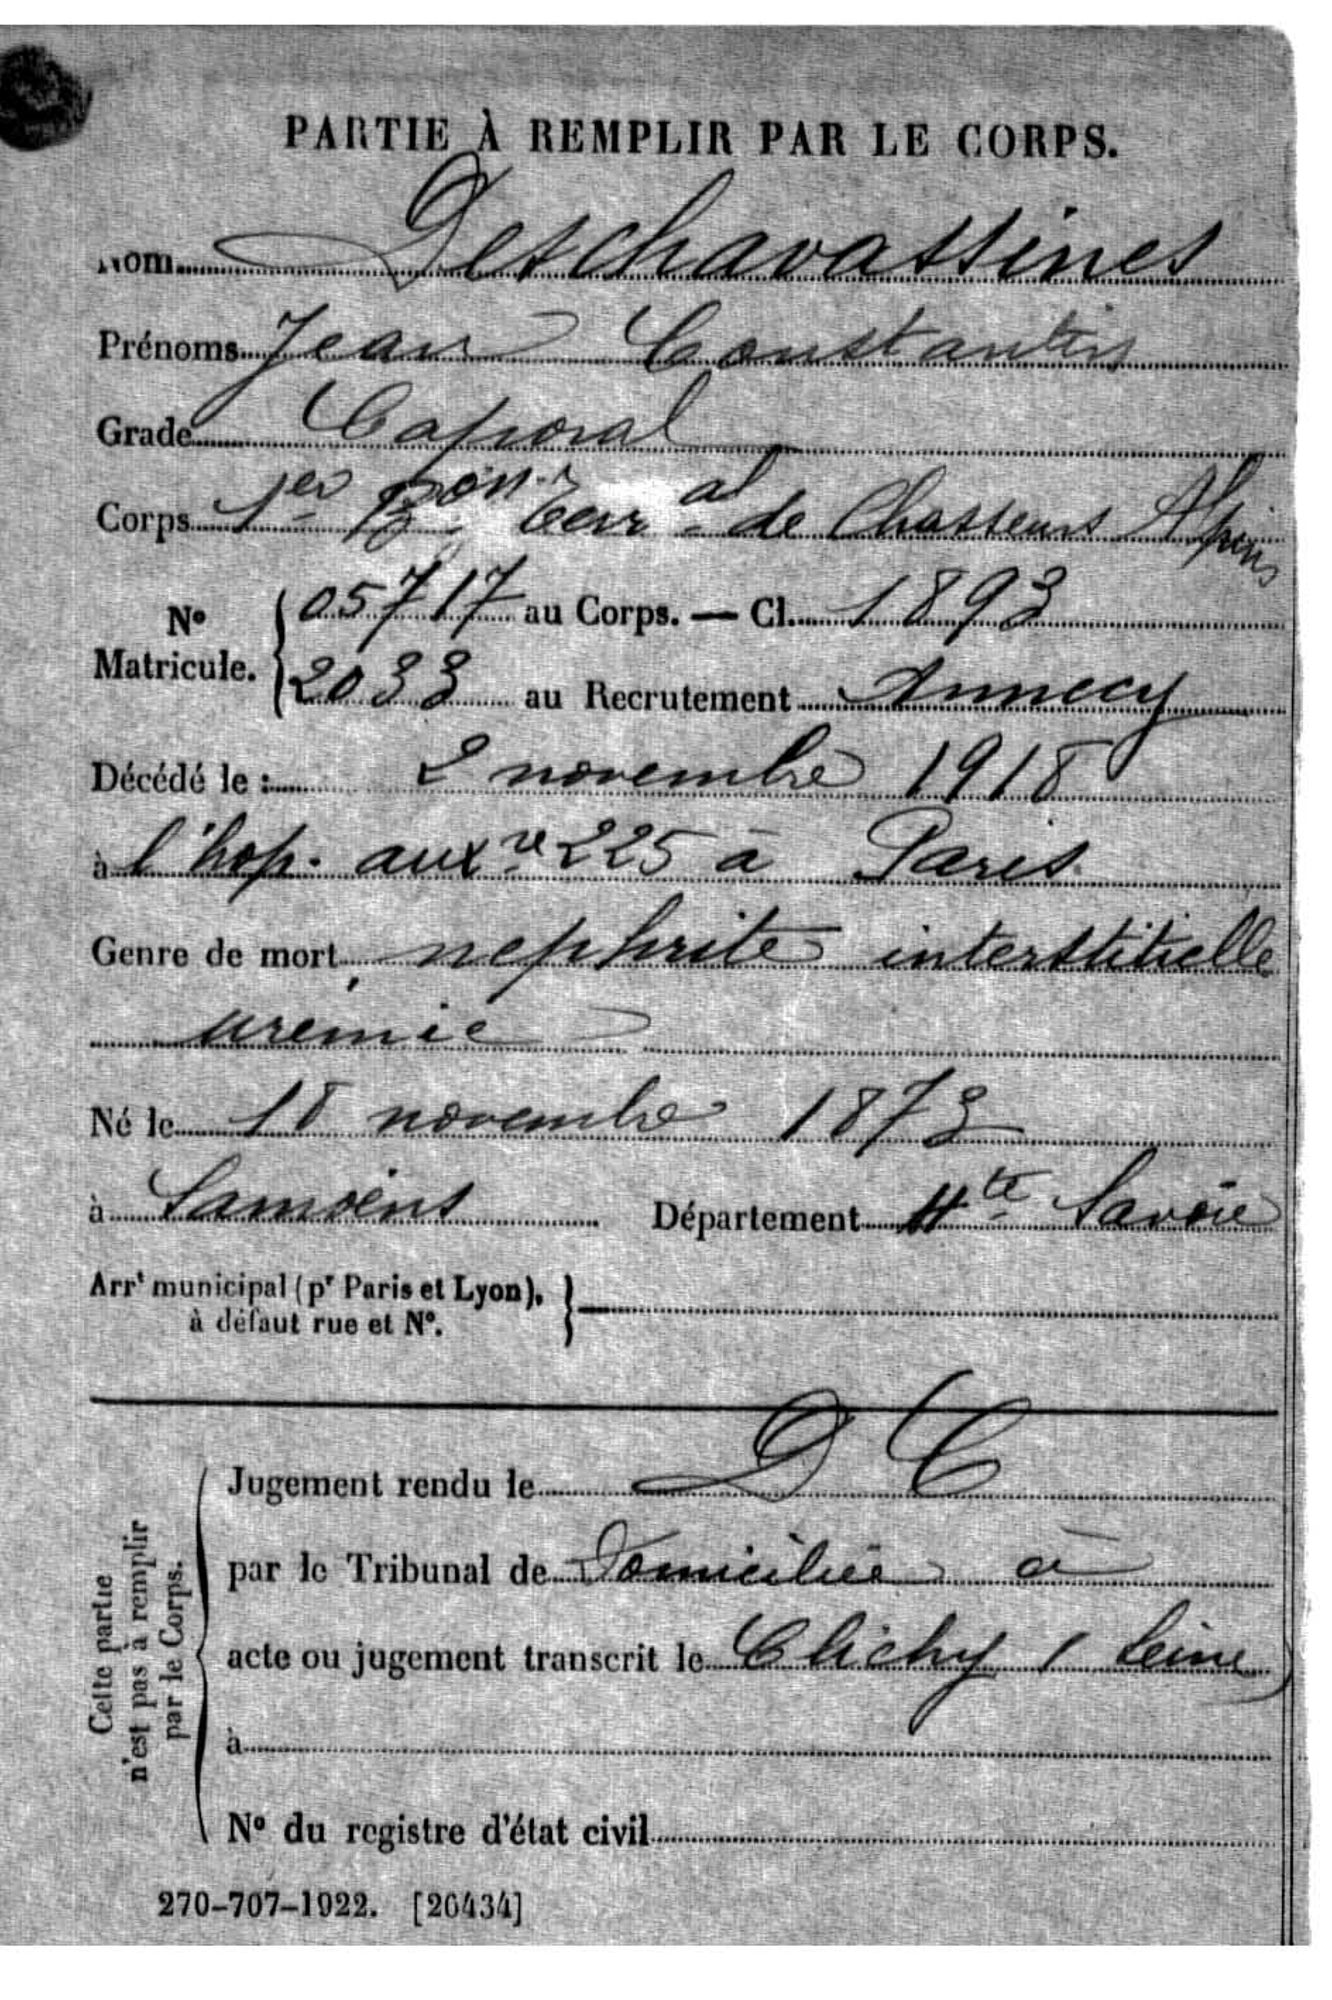 PARTIE À REMPLIR PAR LE CORPS.
Nom Deschavassines
Prénoms Jean Constantin
Grade Caporal
Corps 1er Bon Terral de Chasseurs Alpins
No Matricule. { 05717 au Corps. — Cl. 1893
2033 au Recrutement Annecy
Décédé le : 2 novembre 1918
à l'hop. auxre 225 à Paris
Genre de mort nephrite interstitielle
uremie
Né le 18 novembre 1873
à Samoëns Département Hte Savoie
Arrt municipal (pr Paris et Lyon), }
à défaut rue et No.
D C
Jugement rendu le
par le Tribunal de Domicilié à
acte ou jugement transcrit le Clichy (Seine)
à
No du registre d'état civil
Cette partie
n'est pas à remplir
par le Corps.
270-707-1922. [26434]